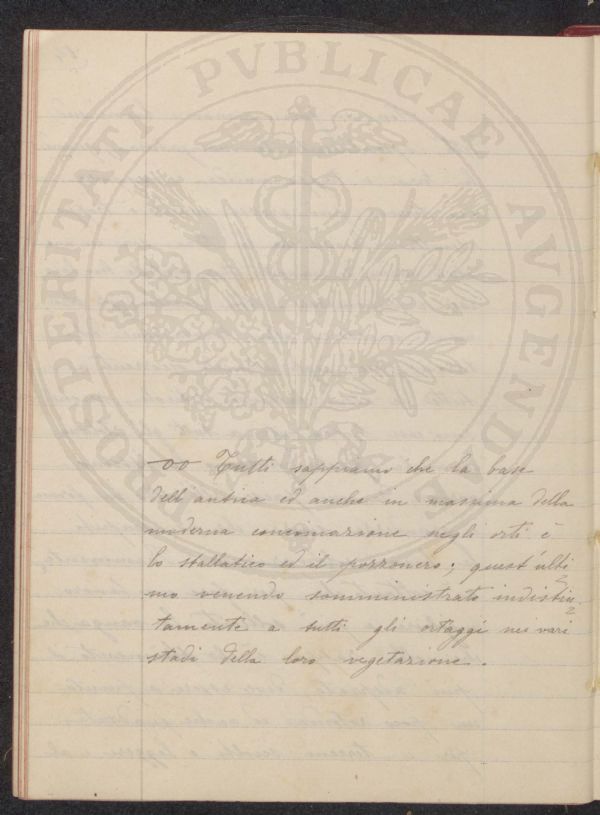 PROSPERITATI PVBLICAE AVGENDAE
oo Tutti sappiamo che la base
dell'antica ed anche in massima della
moderna concimazione negli orti è
lo stallatico ed il pozzonero; quest'ulti
mo venendo somministrato indistin-
tamente a tutti gli ortaggi nei vari
stadi della loro vegetazione.